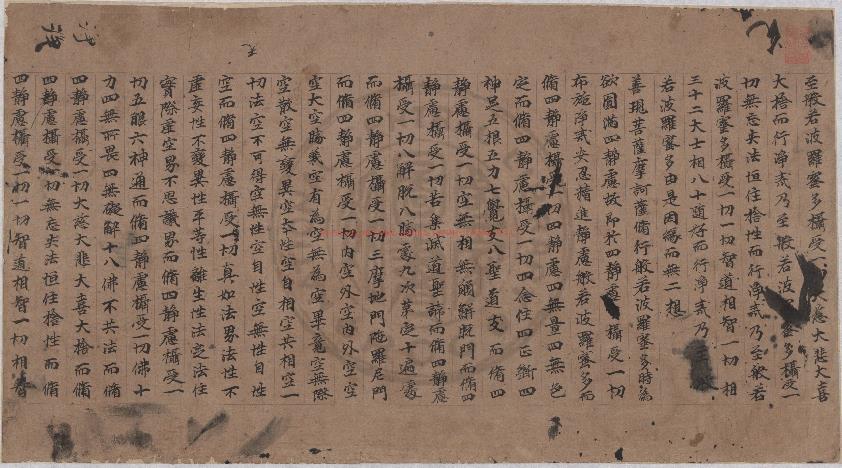 至般若波羅蜜多攝受一切大慈大悲大喜
大捨而行淨戒乃至般若波羅蜜多攝受一
切無忘失法恒住捨性而行淨戒乃至般若
波羅蜜多攝受一切一切智道相智一切相
三十二大士相八十隨好而行淨戒乃至般
若波羅蜜多由是因緣而無二想
善現菩薩摩訶薩脩行般若波羅蜜多時為
欲圓滿四靜慮故即於四靜慮攝受一切
布施淨戒安忍精進靜慮般若波羅蜜多而
脩四靜慮攝受一切四靜慮四無量四無色
定而脩四靜慮攝受一切四念住四正斷四
神足五根五力七覺支八聖道支而脩四
靜慮攝受一切空無相無願解脫門而脩四
靜慮攝受一切苦集滅道聖諦而脩四靜慮
攝受一切八解脫八勝處九次第定十遍處
而脩四靜慮攝受一切三摩地門陁羅尼門
而脩四靜慮攝受一切內空外空內外空空
空大空勝義空有為空無為空畢竟空無際
空散空無變異空本性空自相空共相空一
切法空不可得空無性空自性空無性自性
空而脩四靜慮攝受一切真如法界法性不
虛妄性不變異性平等性離生性法定法住
實際虛空界不思議界而脩四靜慮攝受一
切五眼六神通而脩四靜慮攝受一切佛十
力四無所畏四無礙解十八佛不共法而脩
四靜慮攝受一切大慈大悲大喜大捨而脩
四靜慮攝受一切無忘失法恒住捨性而脩
四靜慮攝受一切一切智道相智一切相智